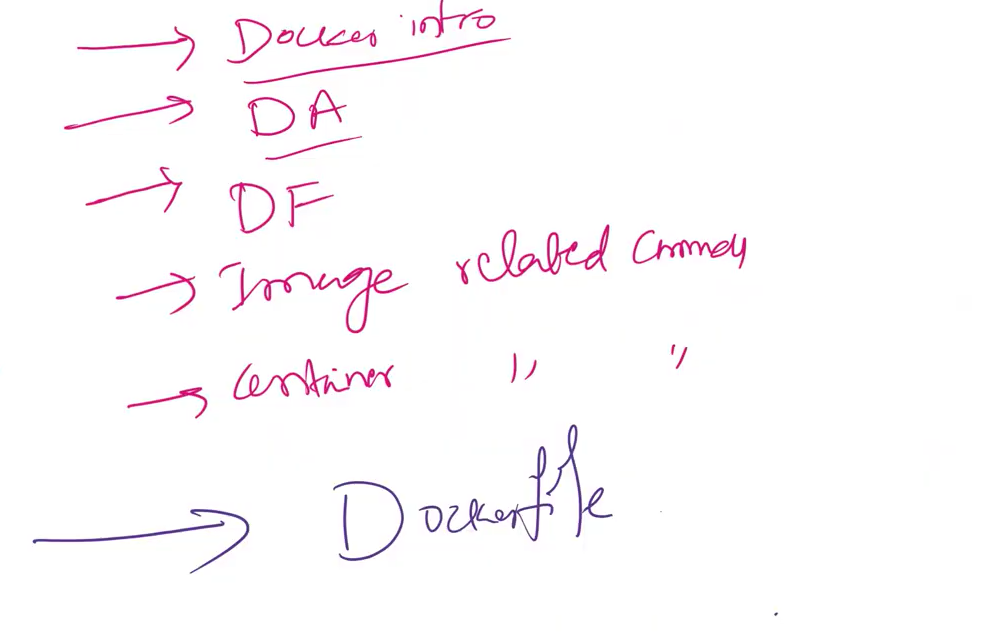 → Docker intro
→ DA
→ DF
→ Image related
→ Container " "
→ Dockerfile